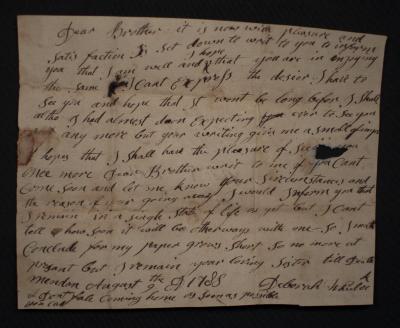 Dear Brother it is now with pleasure and
Satis faction I Set down to writ to you to inform
you that I am well and I hope that you are in injoying
the same I Cant Express the desier I Shall to
See you and hope that it wont be long before I Shall
altho I had almost down Expecting ever to See you
any more but your writing gives me a small
hopes that I Shall have the pleasure of Seeing you
once more Dear Brother writ to me if you Cant
Come Soon and let me know your Sircumstances and
the reason of your going away I would Inform you that
I remain in a Single State of life as yet but I Cant
tell how Soon it will be otherways with me So I must
Conclude for my paper grows Short So no more at
present but I remain your loving Sister till Death
Mendon August the 9 AD 1788 Deborah
Dont fale Coming home as Soon as possible
you Can